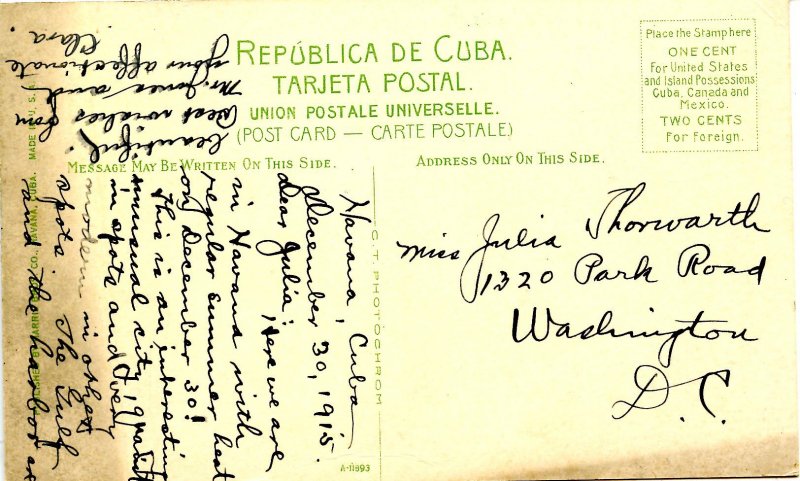 REPÚBLICA DE CUBA.
TARJETA POSTAL.
UNION POSTALE UNIVERSELLE.
(POST CARD — CARTE POSTALE)
MESSAGE MAY BE WRITTEN ON THIS SIDE.
ADDRESS ONLY ON THIS SIDE.
Place the Stamp here
ONE CENT
For United States
and Island Possessions
Cuba, Canada and
Mexico.
TWO CENTS
For Foreign.
Havana, Cuba
December 30, 1915.
Dear Julia;
Here we are
in Havana with
regular summer heat
on December 30!
This is an interesting
unusual city, quaint
in spots and very
modern in other
spots. The Gulf
and the harbor are
beautiful.
Best wishes from
Mr. Jones and
your affectionate
Clara.
Miss Julia Thorwarth
1320 Park Road
Washington
D.C.
C.T. PHOTOCHROM
A-11893
HAVANA, CUBA. MADE IN U.S.A.